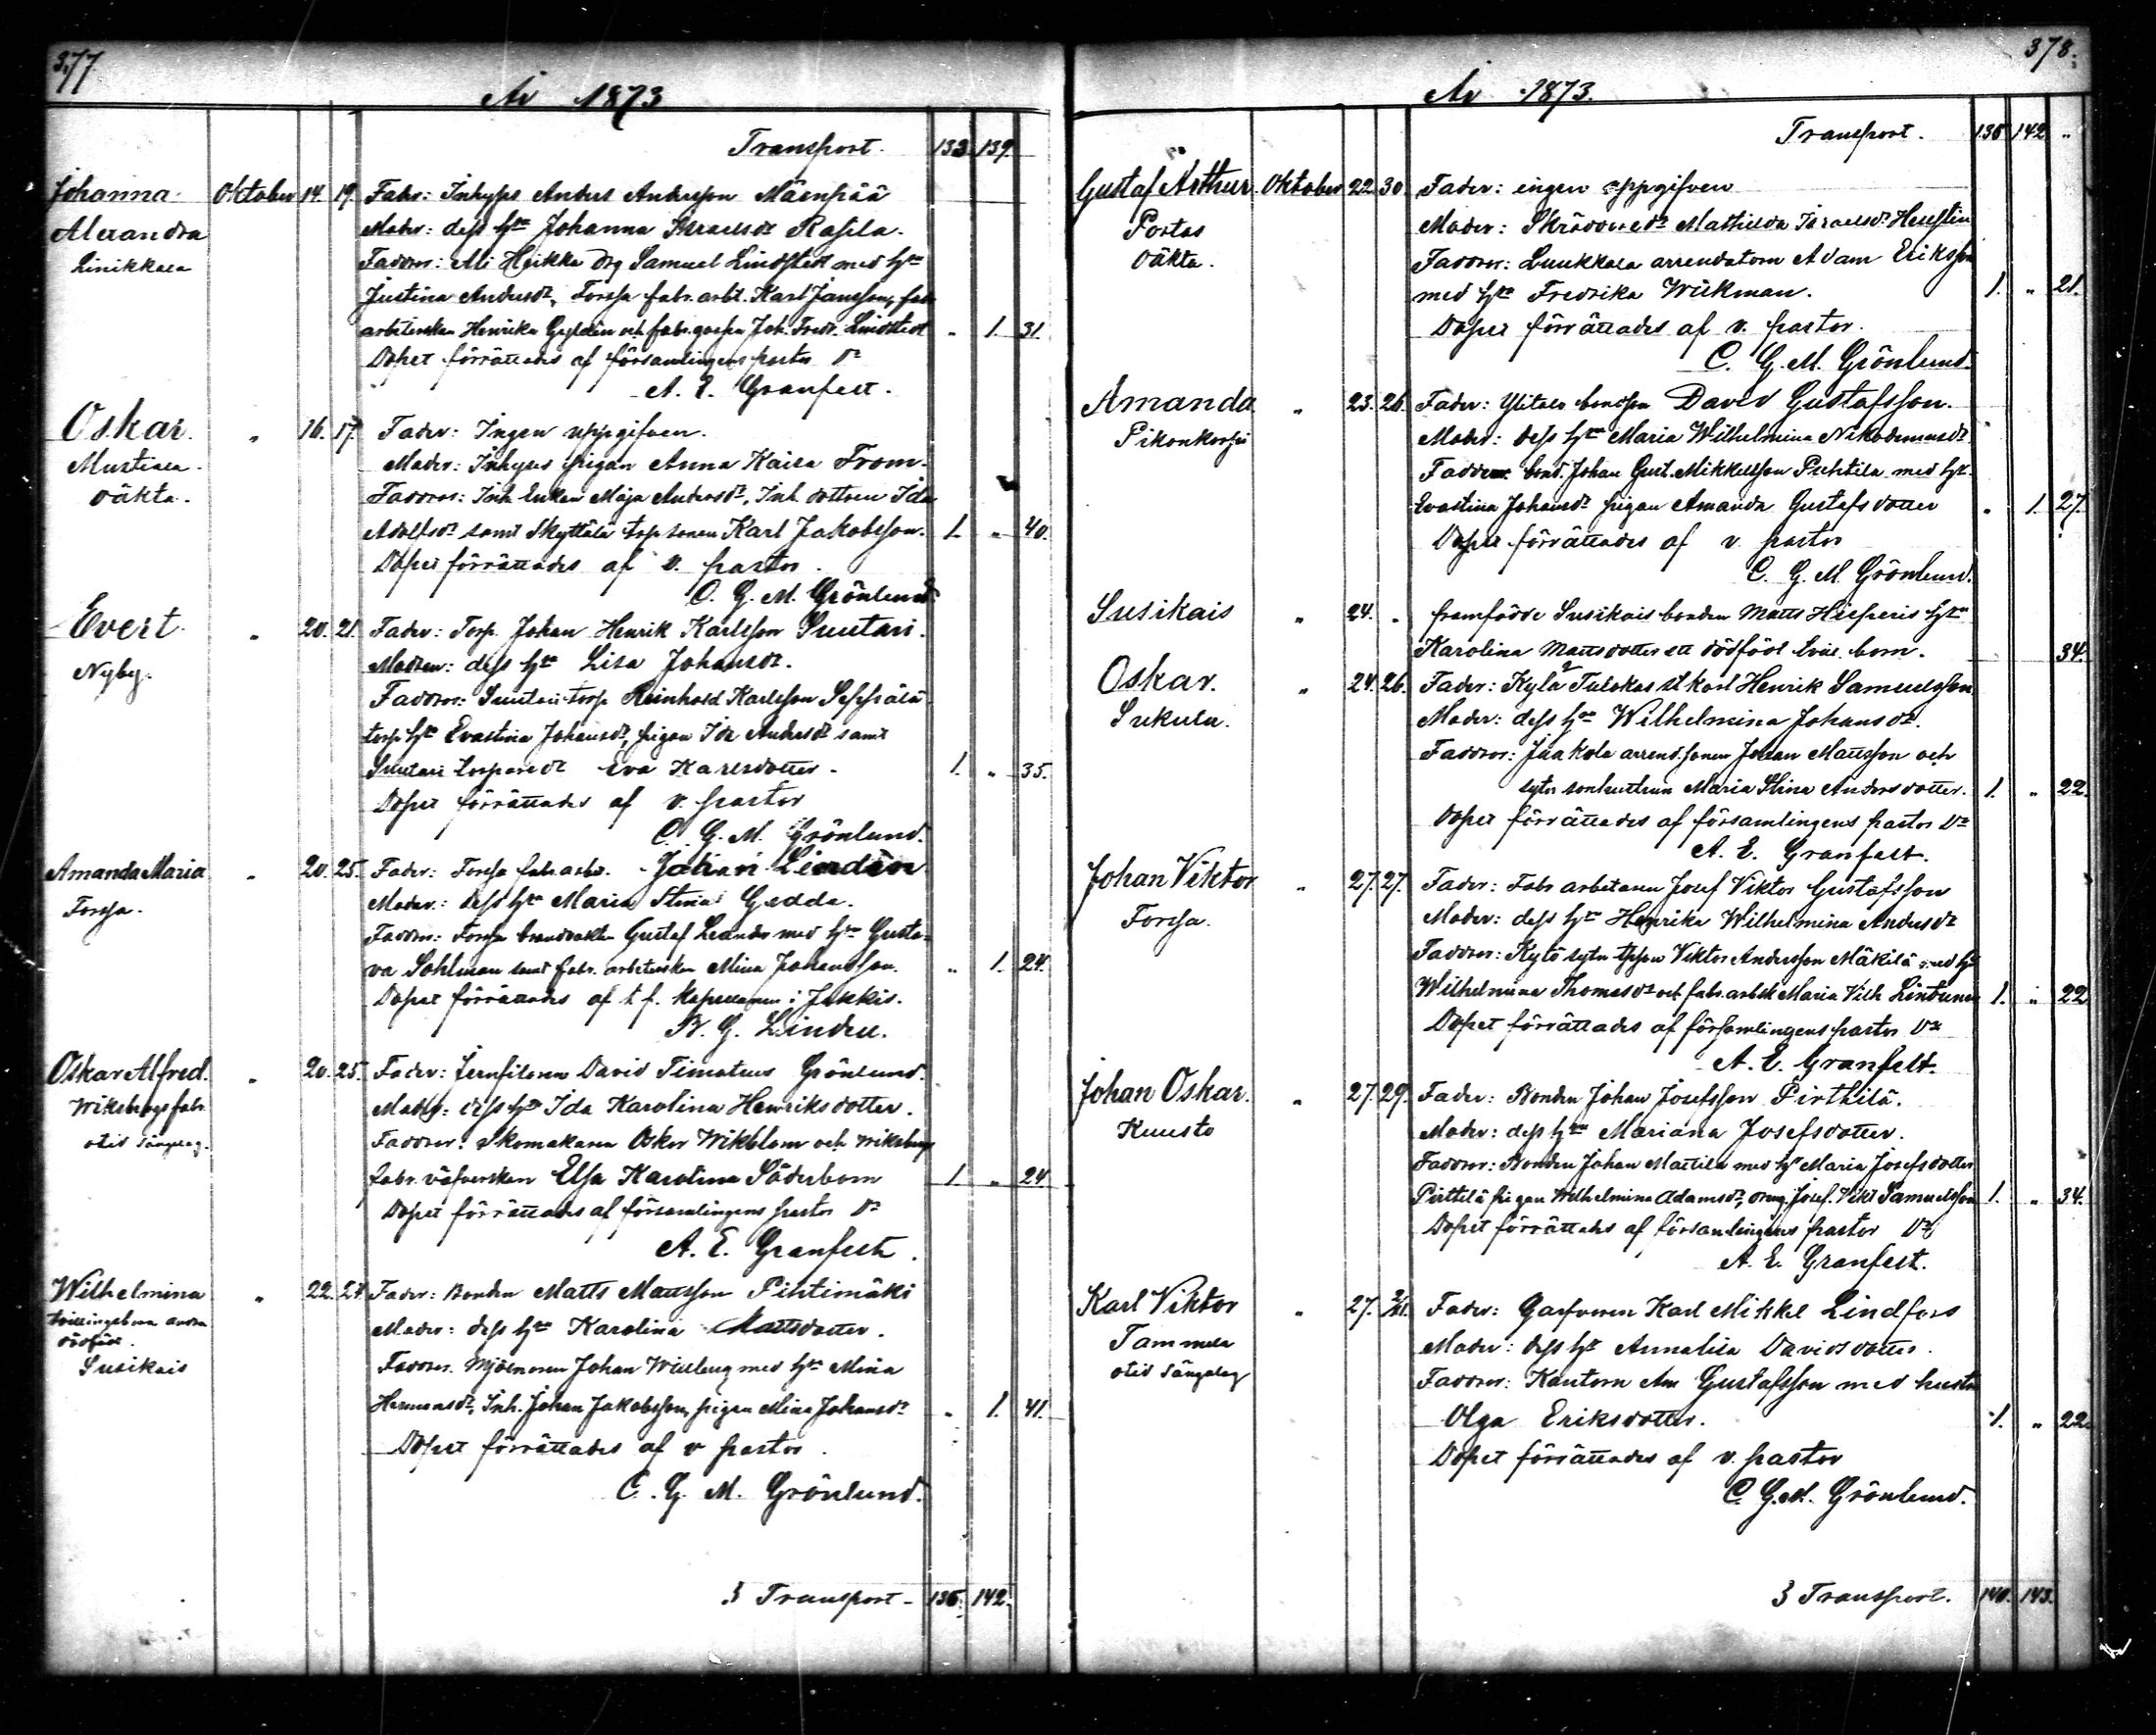 377
År 1873
Transport. 133 139.
Johanna Oktober 14. 19. Fader: Inhyses Anders Andersson Mäenpää
Alexandra Moder: dess h:u Johanna Israelsdr Rasila.
Linikkala Faddrar: Ali Heikka drg Samuel Lindstedt med h:u
Justina Andersdr, Forssa fabr. arbt. Karl Jansson, fabr
arbeterskan Henrika Gyldén och fabr. gossen Joh. Fredr. Lindstedt " 1. 31.
Dopet förrättades af församlingens pastor Dr
A. E. Granfelt.
Oskar. " 16. 17. Fader: Ingen uppgifven.
Mustiala. Moder: Inhyses pigan Anna Kaisa From.
oäkta. Faddrar: Inh. Enkan Maja Andersdr, Inh. dottren Ida
Adolfsdr samt Skyttälä torp sonen Karl Jakobsson. 1. " 40.
Dopet förrättades af v. pastor.
C. G. M. Grönlund.
Evert. " 20. 21. Fader: Torp. Johan Henrik Karlsson Suutari.
Nyby. Modren: dess h:u Lisa Johansdr.
Faddrar: Suutari torp Reinhold Karlsson Seppälä
torp h:u Evastina Johansdr, pigan Ida Andersdr samt
Suutari torparedr Eva Karlsdotter. 1. " 35.
Dopet förrättades af v. pastor
C. G. M. Grönlund.
Amanda Maria " 20. 25. Fader: Forssa fabr. arbr. Johan Lindén
Forssa. Moder: dess h:u Maria Stina Gedda.
Faddrar: Forssa brandvakten Gustaf Leander med h:u Gusta-
va Sohlman samt fabr. arbeterskan Mina Johansson. " 1. 24.
Dopet förrättades af t. f. kapellanen i Jokkis.
K. G. Lindell.
Oskar Alfred. " 20. 25. Fader: Jernfilaren David Timoteus Grönlund.
Wiksbergs fabr. Moder: dess h:u Ida Karolina Henriksdotter.
otid sängelag. Faddrar: Skomakaren Oskar Wikblom och Wiksbergs
fabr. väfverskan Elsa Karolina Söderbom 1. " 24.
Dopet förrättades af församlingens pastor Dr
A. E. Granfelt.
Wilhelmina " 22. 24. Fader: Bonden Matts Mattsson Pihtimäki
tvillingsbarn andra Moder: dess h:u Karolina Mattsdotter.
dödfödt.
Susikais Faddrar. Mjölnaren Johan Willberg med h:u Mina
Hermansdr, Inh. Johan Jakobsson, pigan Mina Johansdr " 1. 41.
Dopet förrättades af v pastor.
C. G. M. Grönlund.
Transport 136. 142.
378.
År 1873.
Transport. 136 142 "
Gustaf Arthur. Oktober 22. 30. Fader: ingen uppgifven
Portas Moder: Skräddaredr Mathilda Israelsdr Hellstén
oäkta. Faddrar: Luukkala arrendatorn Adam Eriksson
med h:u Fredrika Wickman. 1. " 21.
Dopet förrättades af v. pastor.
C. G. M. Grönlund.
Amanda " 23. 26. Fader: Ylitalo bondson David Gustafsson.
Pikonkorpi Moder: dess h:u Maria Wilhelmina Nikodemusdr
Faddrar: bond. Johan Gust. Mikkelsson Puhtila med h:u
Evastina Johansdr pigan Amanda Gustafsdotter " 1. 27.
Dopet förrättades af v. pastor
C. G. M. Grönlund.
Susikais " 24. " framfödde Susikais bonden Matts Hesperis h:u
Karolina Mattsdotter ett dödfödt tvill. barn. 34.
Oskar. " 24. 26. Fader: Kylä Tulokas st karl Henrik Samuelsson
Sukula. Moder: dess h:u Wilhelmina Johansdr.
Faddrar: Jaakola arrend. sonen Johan Mattsson och
sytn sonhustrun Maria Stina Andersdotter. 1. " 22.
Dopet förrättades af församlingens pastor Dr
A. E. Granfelt.
Johan Viktor " 27. 27. Fader: Fabr arbetaren Josef Viktor Gustafsson
Forssa. Moder: dess h:u Henrika Wilhelmina Andersdr
Faddrar: Kyrö sytn tpson Viktor Andersson Mäkilä med h:u
Wilhelmina Thomasdr och fabr. arbtk Maria Vilh Lindunen 1. " 22
Dopet förrättades af församlingens pastor Dr
A. E. Granfelt.
Johan Oskar. " 27. 29. Fader: Bonden Johan Josefsson Pirttilä.
Kuusto Moder: dess h:u Mariana Josefsdotter.
Faddrar: Bonden Johan Mattila med h:u Maria Josefsdotter
Pirttilä pigan Wilhelmina Adamsdr, dreng. Josef. Vikt Samuelsson 1. " 34.
Dopet förrättades af församlingens pastor Dr
A. E. Granfelt.
Karl Viktor " 27. 2/11. Fader: Garfvaren Karl Mikkel Lindfors
Tammela Moder: dess h:u Annalisa Davidsdotter.
otid sängelag Faddrar: Kantorn Am Gustafsson med hustru
Olga Eriksdotter. 1. " 22.
Dopet förrättades af v. pastor
C. G. M. Grönlund.
Transport. 140. 143.